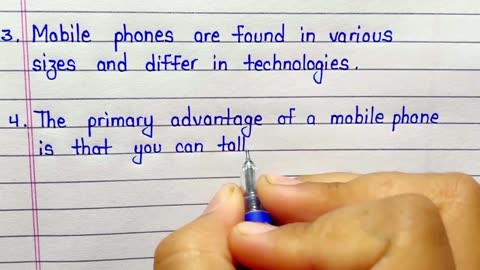 3. Mobile phones are found in various
sizes and differ in technologies.
4. The primary advantage of a mobile phone
is that you can tall